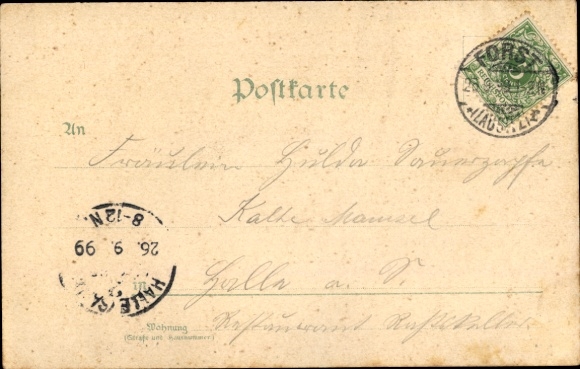 FORST
(LAUSITZ)
Postkarte
An
Fräulein Hulda Sauerzapfe
Kalte Mamsel
8-12N
26. 9. 99
HALLE (S
in Halle a. S.
Wohnung
(Straße und Hausnummer)
Restaurant Rathskeller